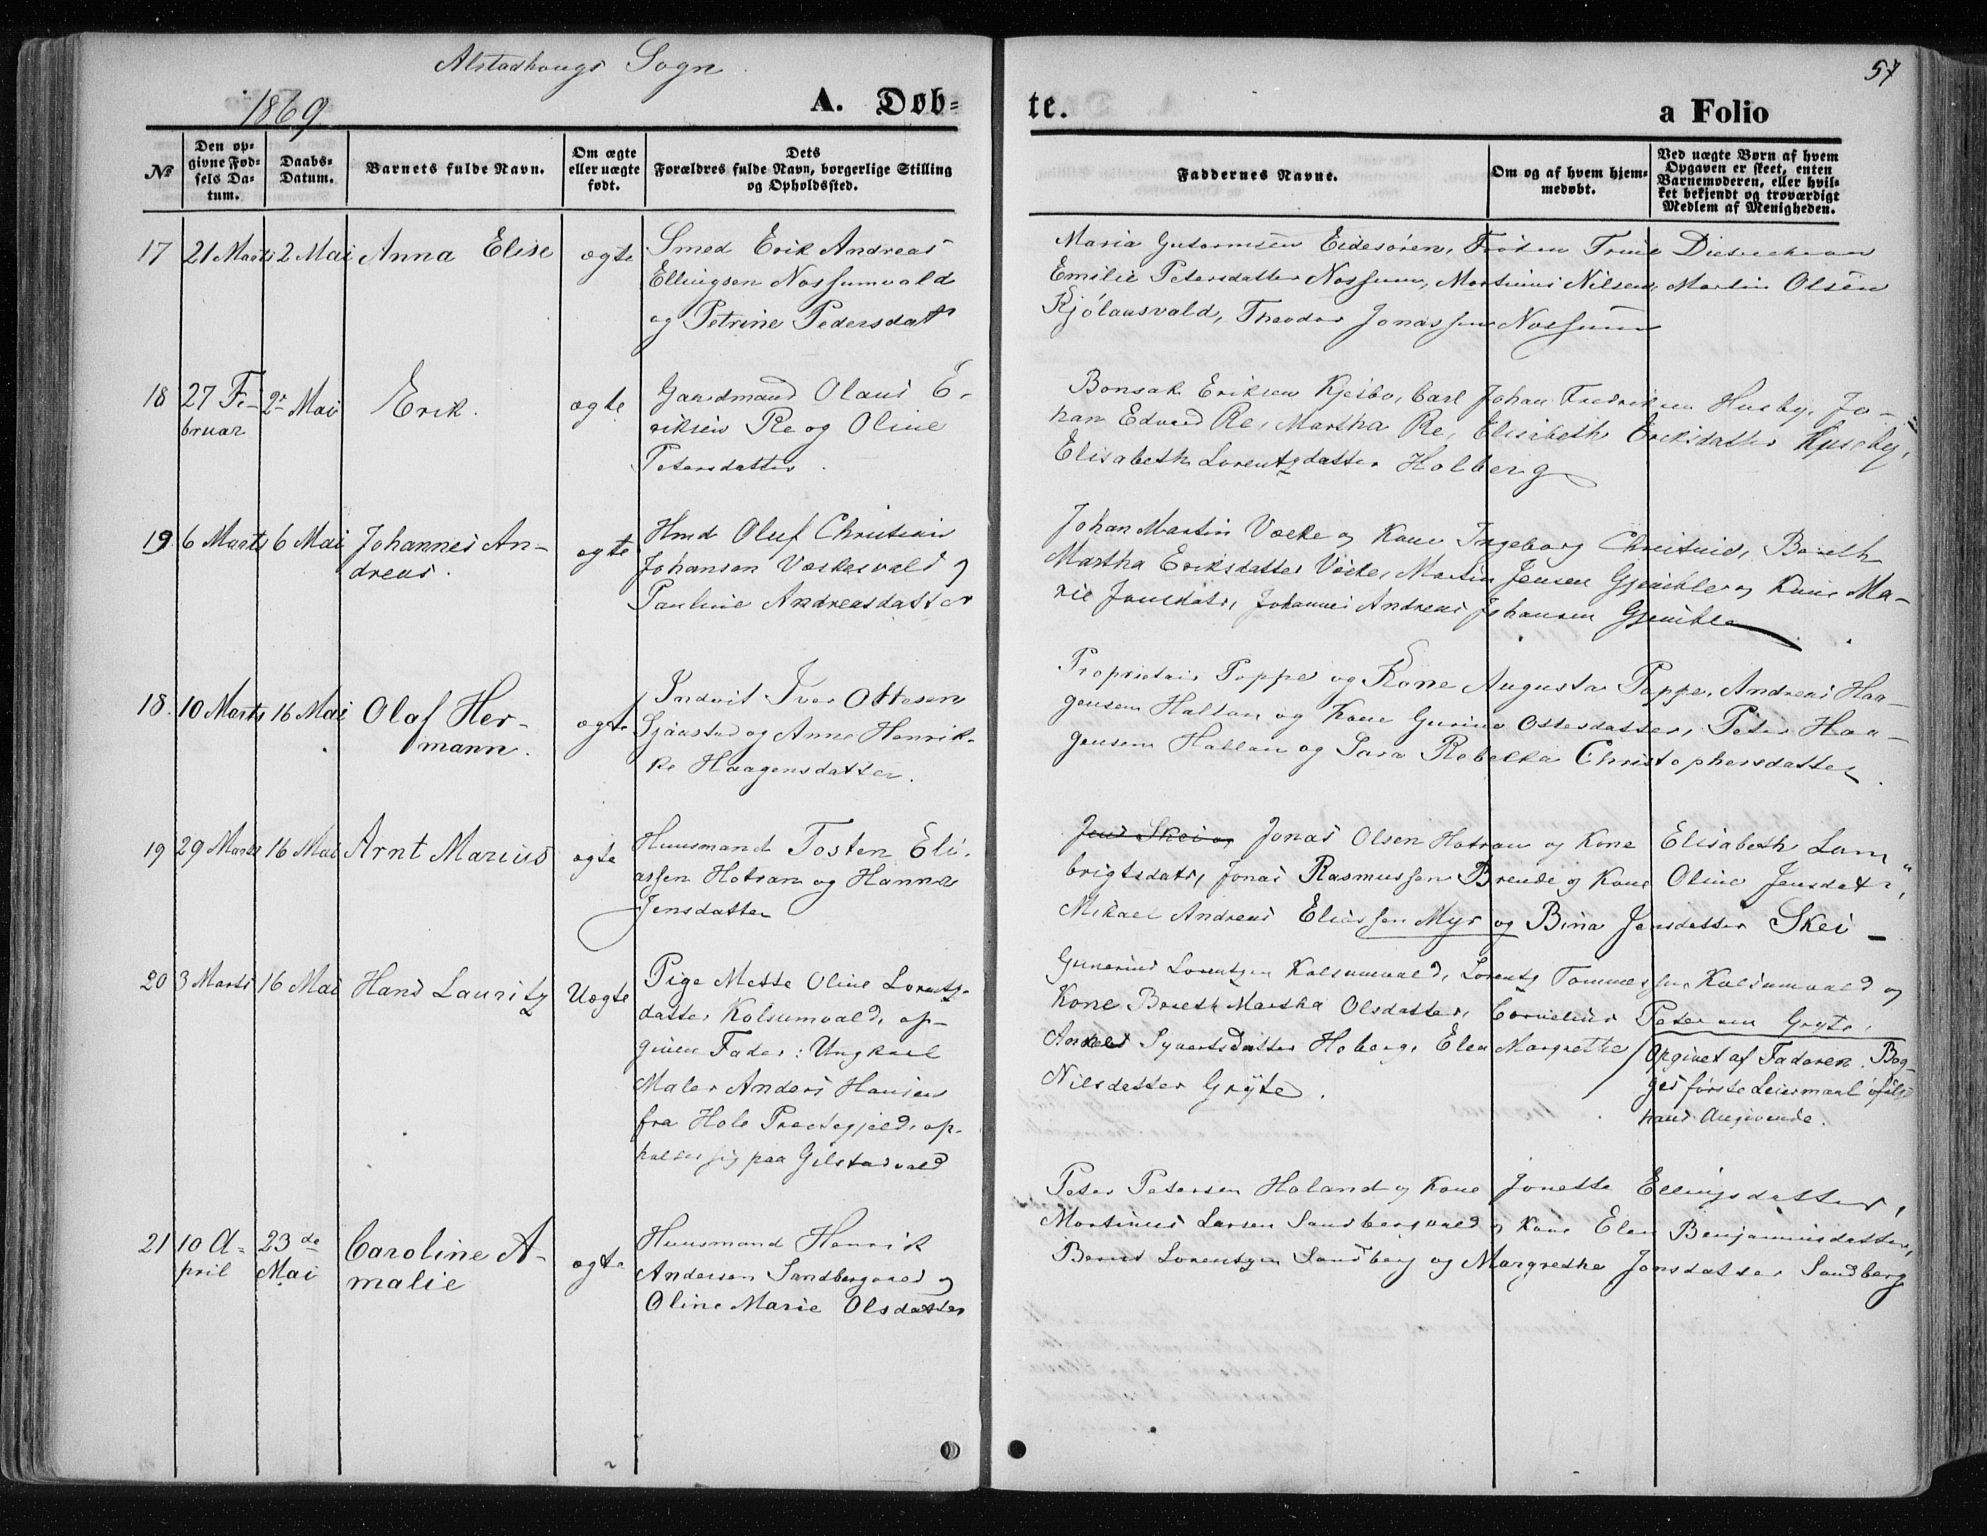 Alstadhougs Sogn.
57
1869
A. Døb=
te.
a Folio
No
Den op=
givne Fød=
sels Da=
tum.
Daabs=
Datum.
Barnets fulde Navn.
Om ægte
eller uægte
født.
Dets
Forældres fulde Navn, borgerlige Stilling
og Opholdssted.
Faddernes Navne.
Om og af hvem hjem=
medøbt.
Ved uægte Børn af hvem
Opgaven er skeet, enten
Barnemoderen, eller hvil=
ket bekjendt og troværdigt
Medlem af Menigheden.
17 21 Marts 2 Mai Anna Elise ægte
Smed Erik Andreas
Ellingsen Nossumvald
og Petrine Pedersdatr
Maria Eidesøren, Frøken Trine
Emilie Petersdatter Nossum, Martinus Nilsen, Martin Olsen
Kjølaasvald, Theodor Jonassen Nossum
18 27 Fe-
bruar 2 Mai Erik. ægte
Gaardmand Olaus E-
riksen Re og Oline
Petersdatter.
Bonsak Eriksen Kjesbo, Carl Johan Fredriksen Husby, Jo-
han Edvard Re, Martha Re, Elisabeth Eriksdatter Husby,
Elisabeth Lorentzdatter Holberg
19 6 Marts 6 Mai Johannes An-
dreas. ægte
Hmd Oluf Christian
Johansen Væskesvald og
Pauline Andreasdatter
Johan Martin og Kone Ingeborg Christine, Bereth
Martha Eriksdatter Martin Jensen og Kone Ma-
rie Jonsdatr, Johannes Andreas Johansen
18. 10 Marts 16 Mai Olaf Her-
mann. ægte
Indvit Iver Ottesen
Sjaastad og Anne Henrik-
ke Haagensdatter.
Proprietair Poppe og Kone Augusta Poppe, Andreas Haa-
gensen Hallan og Kone Gurine Ottesdatter, Peter Haa-
gensen Hallan og Sara Rebekka Christophersdatter.
19 29 Marts 16 Mai Arnt Marius ægte
Huusmand Tosten Eli-
assen Hotran og Hanna
Jensdatter
Jens Skei og Jonas Olsen Hotran og Kone Elisabeth Lam-
brigtsdatr, Jonas Rasmussen Brende og Kone Oline Jensdatr,
Mikael Andreas Eliassen Myr og Bina Jensdatter Skei
20 3 Marts 16 Mai Hans Lauritz Uægte
Pige Mette Oline Lorentz-
datter Kolsumvald, op-
given Fader: Ungkarl
Maler Anders Hansen
fra Hole Præstegjeld, op-
holder sig paa Gilstadvald
Gunerius Lorentzen Kolsumvald, Lorentz Tommessen Kolsumvald og
Kone Bereth Martha Olsdatter, Cornelius Petersen Gryte,
Syvertsdatter Hoberg, Elen Margrethe
Nilsdatter Gryte.
Opgivet af Faderen. Beg-
ges første Leiermaal ifølge
hans Angivende.
21 10 A-
pril 23de
Mai Caroline A-
malie ægte
Huusmand Henrik
Andersen Sandbergvald og
Oline Marie Olsdatter
Peter Petersen Holand og Kone Jonetta Ellingsdatter,
Martinus Larsen Sandbergvald og Kone Elen Benjaminsdatter,
Bernt Lorentzen Sandberg og Margretha Jonsdatter Sandberg